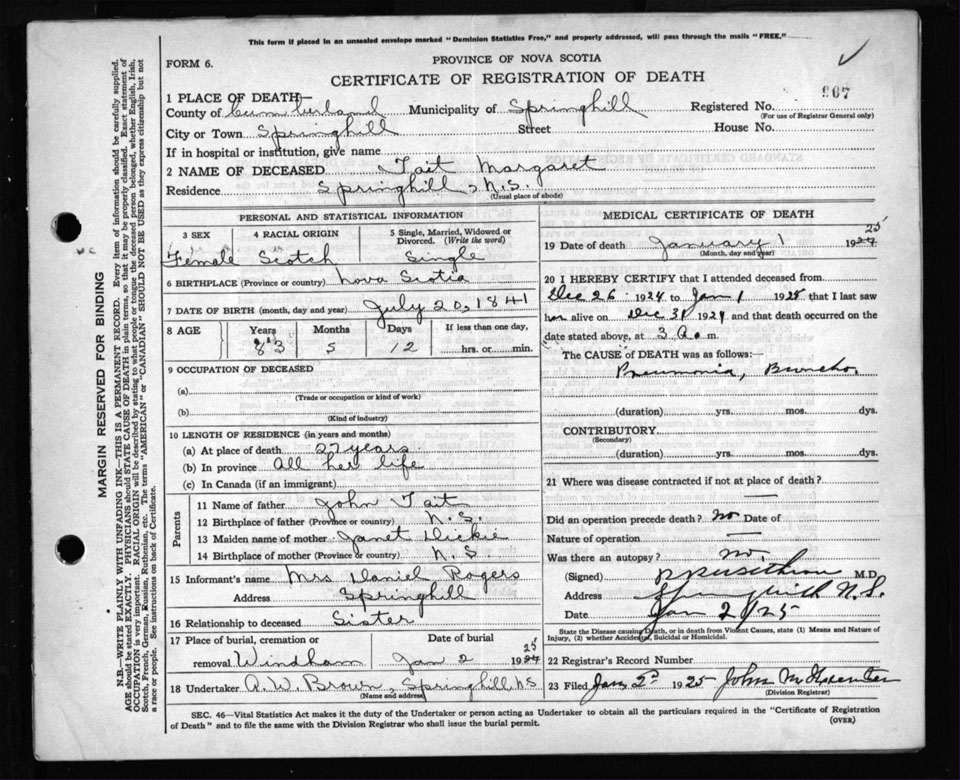 This form if placed in an unsealed envelope marked "Dominion Statistics Free," and properly addressed, will pass through the mails "FREE."
FORM 6.
PROVINCE OF NOVA SCOTIA
CERTIFICATE OF REGISTRATION OF DEATH
907
1 PLACE OF DEATH—
County of Cumberland Municipality of Springhill Registered No.
(For use of Registrar General only)
City or Town Springhill Street House No.
If in hospital or institution, give name
2 NAME OF DECEASED Tait Margaret
Residence Springhill, N.S.
(Usual place of abode)
PERSONAL AND STATISTICAL INFORMATION
3 SEX 4 RACIAL ORIGIN 5 Single, Married, Widowed or Divorced. (Write the word)
Female Scotch Single
6 BIRTHPLACE (Province or country) Nova Scotia
7 DATE OF BIRTH (month, day and year) July 20, 1841
8 AGE Years Months Days If less than one day,
83 5 12 hrs. or min.
9 OCCUPATION OF DECEASED
(a)
(Trade or occupation or kind of work)
(b)
(Kind of industry)
10 LENGTH OF RESIDENCE (in years and months)
(a) At place of death 27 years
(b) In province All her life
(c) In Canada (if an immigrant)
Parents
11 Name of father John Tait
12 Birthplace of father (Province or country) N.S.
13 Maiden name of mother Janet Dickie
14 Birthplace of mother (Province or country) N.S.
15 Informant's name Mrs Daniel Rogers
Address Springhill
16 Relationship to deceased Sister
17 Place of burial, cremation or removal Windham Date of burial Jan 2 1924 25
18 Undertaker A.W. Brown, Springhill, NS
(Name and address)
MEDICAL CERTIFICATE OF DEATH
19 Date of death January 1 1924 25
(Month, day and year)
20 I HEREBY CERTIFY that I attended deceased from
Dec 26 1924 to Jan 1 1925 that I last saw
her alive on Dec 31 1924 and that death occurred on the
date stated above, at 3 a. m.
The CAUSE of DEATH was as follows:—
Pneumonia, Broncho
(duration) yrs. mos. dys.
CONTRIBUTORY
(Secondary)
(duration) yrs. mos. dys.
21 Where was disease contracted if not at place of death? —
Did an operation precede death? No Date of
Nature of operation —
Was there an autopsy? No.
(Signed) M.D.
Address Springhill N.S.
Date Jan 2/25
State the Disease causing Death, or in death from Violent Causes, state (1) Means and Nature of Injury, (2) whether Accidental, Suicidal or Homicidal.
22 Registrar's Record Number
23 Filed Jan 5 1925 John
(Division Registrar)
SEC. 46—Vital Statistics Act makes it the duty of the Undertaker or person acting as Undertaker to obtain all the particulars required in the "Certificate of Registration
of Death" and to file the same with the Division Registrar who shall issue the burial permit.
(OVER)
MARGIN RESERVED FOR BINDING
N.B.—WRITE PLAINLY WITH UNFADING INK—THIS IS A PERMANENT RECORD. Every item of information should be carefully supplied.
AGE should be stated EXACTLY. PHYSICIANS should STATE CAUSE OF DEATH in plain terms, so that it may be properly classified. Exact statement of
OCCUPATION is very important. RACIAL ORIGIN will be described by stating to what people or tongue the deceased person belonged, whether English, Irish,
Scotch, French, German, Russian, Ruthenian, etc. The terms "AMERICAN" or "CANADIAN" SHOULD NOT BE USED as they express citizenship but not
a race or people. See instructions on back of Certificate.